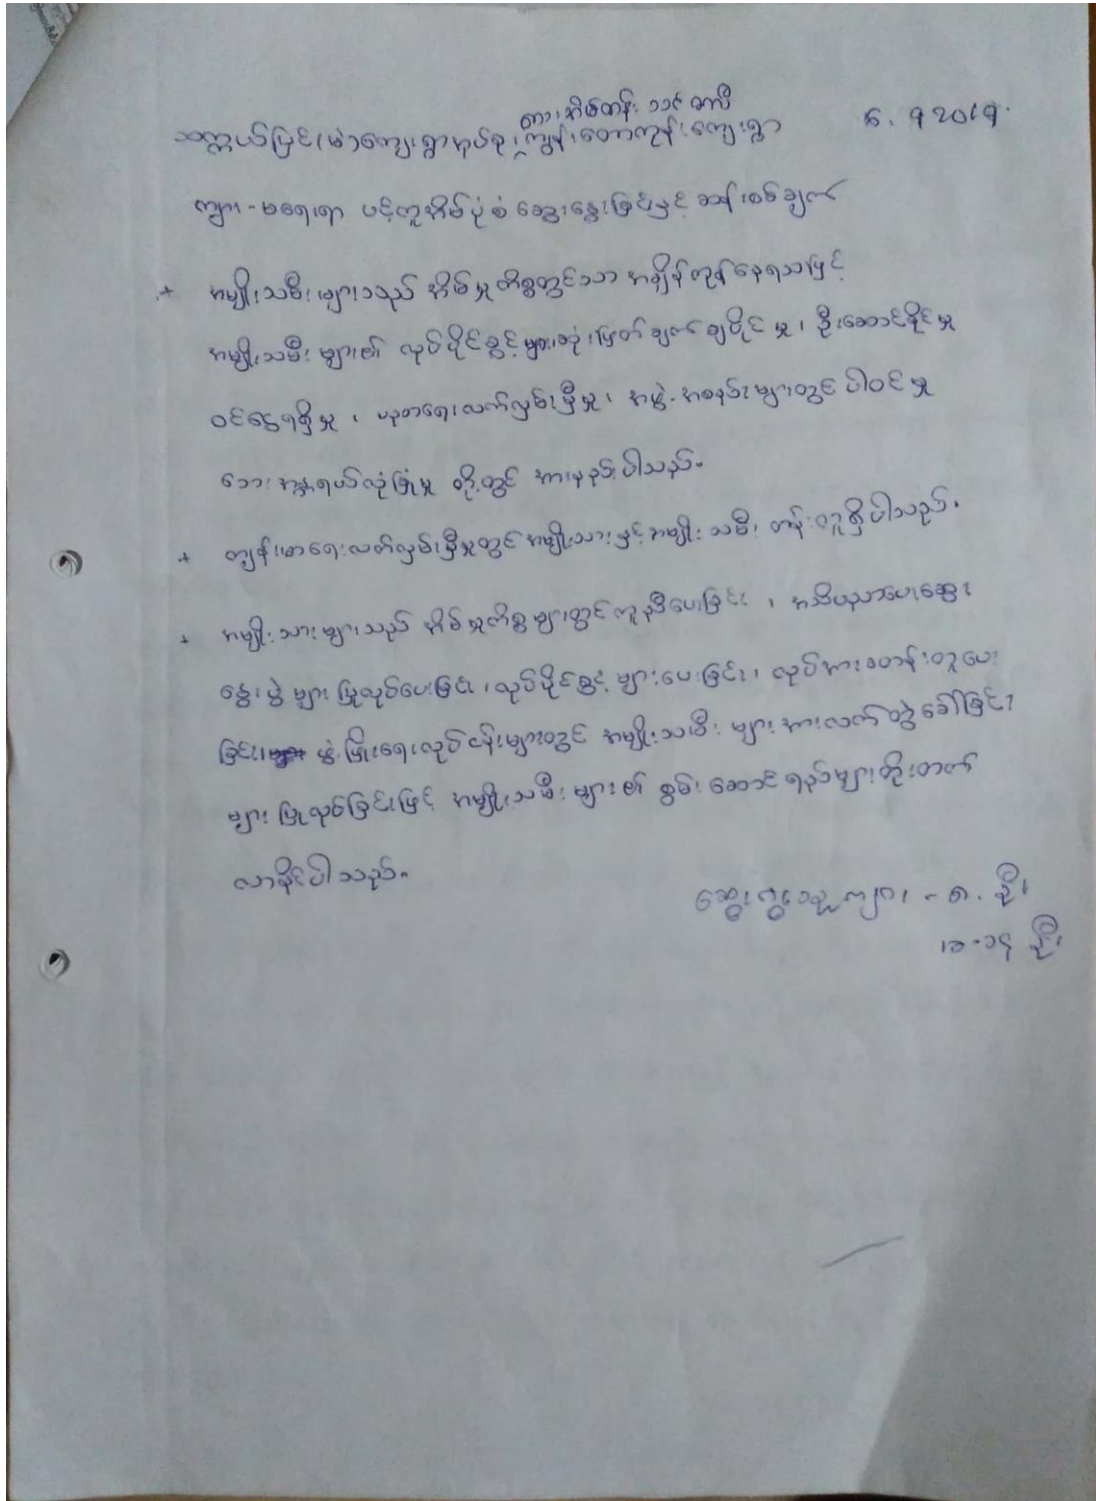 တာ၊ အိမ်တန်း ၁၁၉ တာဝီ
သက္ကယ်ပြင်(မဲ)ကျေးရွာအုပ်စု၊ ကျွန်းတောကုန်းကျေးရွာ 6.9 2019.
ကျား-မရေးရာ ပင့်ကူအိမ်ပုံစံ ဆွေးနွေးခြင်းနှင့် ဆန်းစစ်ချက်
+ အမျိုးသမီးများသည် အိမ်မှုကိစ္စတွင်သာ အချိန်ကုန်နေရသဖြင့်
အမျိုးသမီးများ၏ လုပ်ပိုင်ခွင့်၊ ဆုံးဖြတ်ချက်ချပိုင်မှု၊ ဦးဆောင်နိုင်မှု
ဝင်ငွေရရှိမှု၊ ပညာရေးလက်လှမ်းမှီမှု၊ အဖွဲ့အစည်းများတွင် ပါဝင်မှု
ဘေးအန္တရယ်လုံခြုံမှု တို့တွင် အားနည်းပါသည်။
+ ကျန်းမာရေးလက်လှမ်းမှီမှုတွင် အမျိုးသားနှင့်အမျိုးသမီး တန်းတူရှိပါသည်။
+ အမျိုးသားများသည် အိမ်မှုကိစ္စများတွင်ကူညီပေးခြင်း၊ အသိပညာပေးဆွေး
နွေးပွဲများ ပြုလုပ်ပေးခြင်း၊ လုပ်ပိုင်ခွင့်များပေးခြင်း၊ လုပ်အားခတန်းတူပေး
ခြင်း၊ ဖွံ့ဖြိုးရေးလုပ်ငန်းများတွင် အမျိုးသမီးများအားလက်တွဲခေါ်ခြင်း
များ ပြုလုပ်ခြင်းဖြင့် အမျိုးသမီးများ၏ စွမ်းဆောင်ရည်များတိုးတက်
လာနိုင်ပါသည်။
ဆွေးနွေးသူ ကျား - ၈. ဦး
မ-၁၄ ဦး